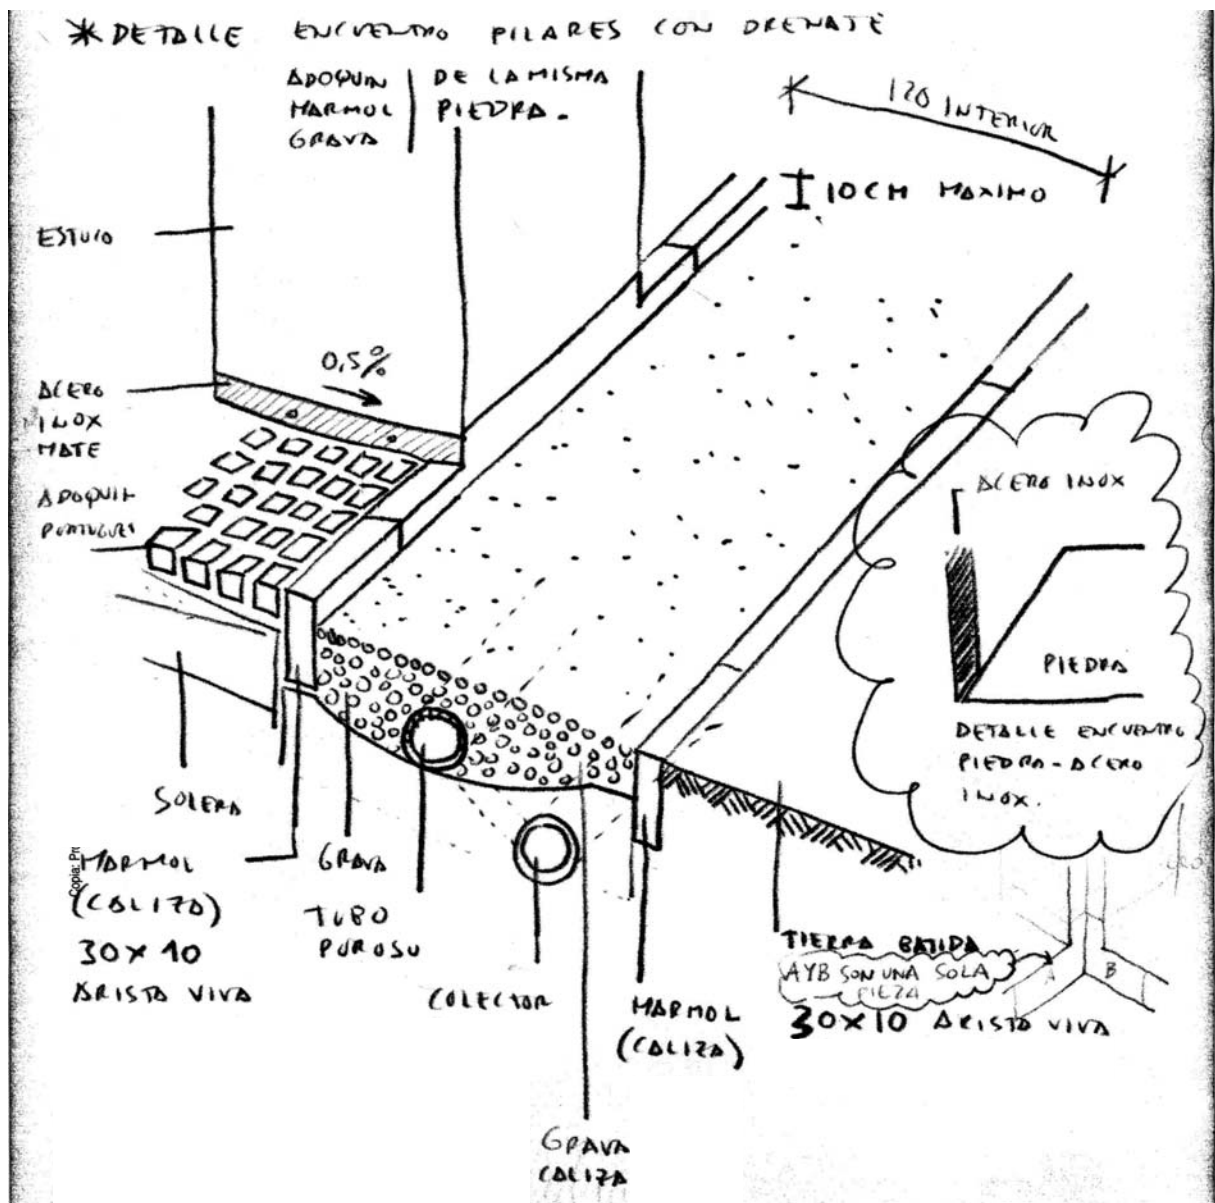 * DETALLE ENCUENTRO PILARES CON DRENATE
ADOQUIN
MARMOL
GRAVA
DE LA MISMA
PIEDRA.
120 INTERIOR
10CM MAXIMO
ESTUCO
0,5%
ACERO
INOX
MATE
ADOQUIN
PORTUGUES
ACERO INOX
PIEDRA
DETALLE ENCUENTRO
PIEDRA-ACERO
INOX.
SOLERA
Copia: Pr
MARMOL
(CALIZA)
30X10
ARISTA VIVA
GRAVA
TUBO
POROSO
COLECTOR
MARMOL
(CALIZA)
TIERRA BATIDA
AYB SON UNA SOLA
PIEZA
A
B
30X10 ARISTA VIVA
GRAVA
CALIZA